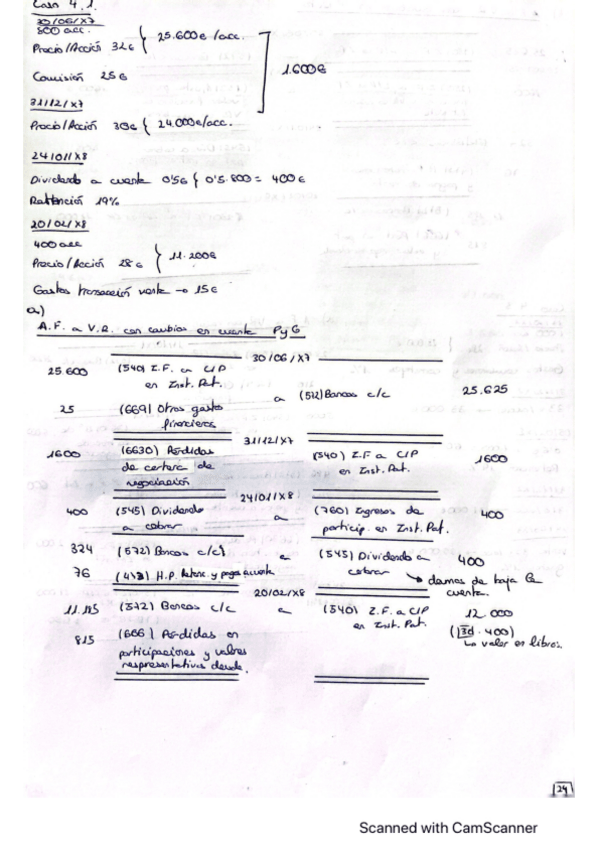 Caso 4.1.
30/06/X7
800 acc.
Precio/Acción 32€ { 25.600€/acc.
Comisión 25€
1.600€
31/12/X7
Precio/Acción 30€ { 24.000€/acc.
24/01/X8
Dividendo a cuenta 0'5€ { 0'5.800 = 400€
Retención 19%
20/02/X8
400 acc
Precio/Acción 28€ } 11.200€
Gastos transacción venta → 15€
a)
A.F. a V.R. con cambios en cuenta PyG
30/06/X7
25.600 (540) I.F. a C/P
en Inst. Pat.
a (512) Bancos c/c 25.625
25 (669) Otros gastos
financieros
31/12/X7
1600 (6630) Pérdidas
de cartera de
negociación
(540) I.F a C/P
en Inst. Pat.
1600
24/01/X8
400 (545) Dividendo
a cobrar
a (760) Ingresos de
particip. en Inst. Pat.
400
324 (572) Bancos c/c)
a (545) Dividendo a
cobrar
400
76 (473) H.P. Retenc. y pagos a cuenta
→ damos de baja la
cuenta.
20/02/X8
11.185 (572) Bancos c/c
a (540) I.F. a C/P
en Inst. Pat.
12.000
(30 . 400)
↳ valor en libros.
815 (666) Pérdidas en
participaciones y valores
respresentativos deuda.
24
Scanned with CamScanner